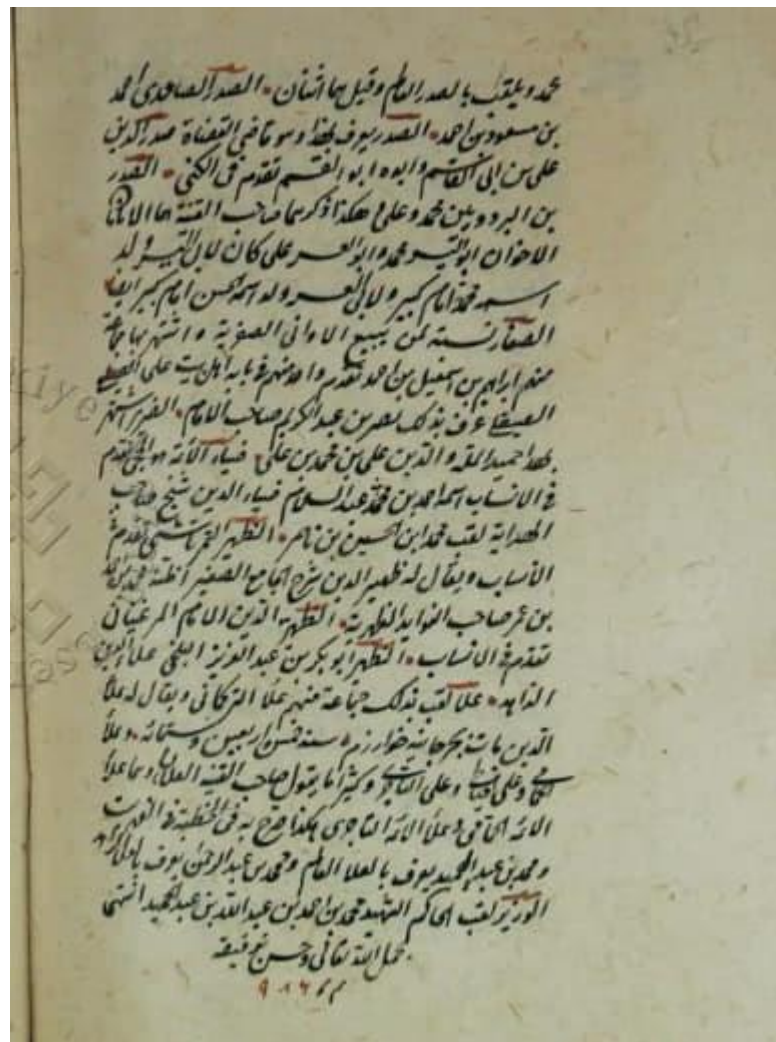 محمد ويلقب بالصدر العالم وقيل هما اثنان • الصدر الصاعدى احمد
بن مسعود بن احمد • الصدر يعرف بهذا وهو قاضى القضاة صدر الدين
على بن ابى القاسم وابوه ابو القسم تقدم فى الكنى • الصدر
بن البزدويين محمد وعلى هكذا ذكرهما صاحب القنية هما الامامان
الاخوان ابو اليسر محمد وابو العسر على كان لابى اليسر ولد
اسمه محمد امام كبير ولابى العسر ولد اسمه الحسن امام كبير ايضا
الصفار نسبة لمن يبيع الاوانى الصفرية واشتهر بها جماعة
منهم ابراهيم بن اسمعيل بن احمد تقدم واحد منهم فى بابه اهل بيت علمى
عرف بذلك نصر بن عبد الكريم صاحب الامام • الضرير اشتهر
بهذا حميد الملة والدين على بن محمد بن على • ضياء الائمة تقدم
فى الانساب اسمه احمد بن محمد عبد السلام ضياء الدين شيخ صاحب
الهداية لقب محمد ابن الحسين بن ناصر • الظهير التمرتاشى تقدم فى
الانساب ويقال له ظهير الدين شرح الجامع الصغير اظنه محمد بن احمد
بن عمر صاحب الفوايد الظهرية • الظهير الدين الامام المرغينانى
تقدم فى الانساب • الظهير ابو بكر بن عبد العزيز البلخى علاء الدين
الزاهد • علا لقب بذلك جماعة منهم علا التركانى ويقال له علا
الدين مات بجرجانية خوارزم سنة خمس اربعين وستمائة • وعلا
وعلى التاجرى وكثيرا ما يقول صاحب القنية العلاان وهما علا
الائمة الحمامى وعلا الائمة التاجرى هكذا صرح به فى الخطبة فى الفهرست
ومحمد بن عبد الحميد يعرف بالعلا العالم ومحمد بن عبد الرحمن يعرف بالعلا
الوزير لقب الحاكم الشهيد محمد بن احمد بن عبد الله بن عبد المجيد انتهى
بحمد الله تعالى وحسن توفيقه
م م ٩٨٦